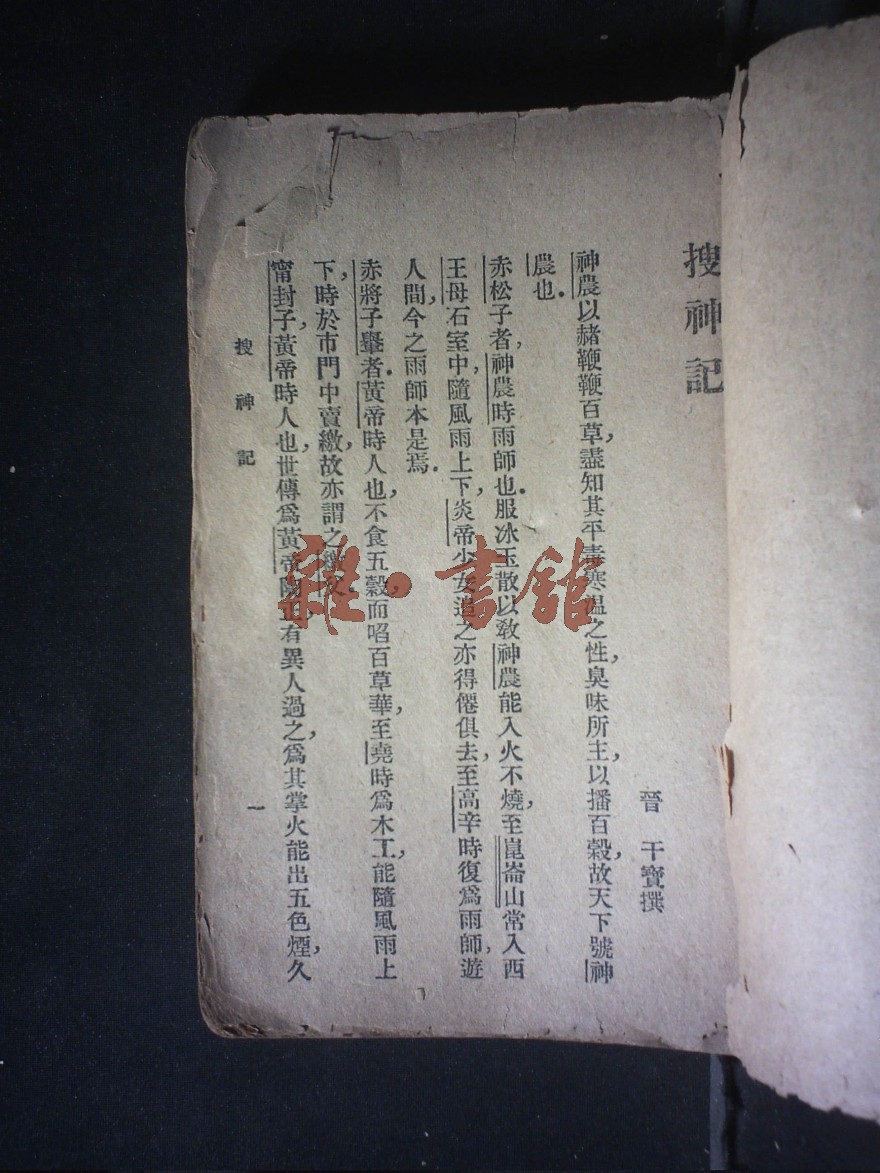 搜神記
晉 干寶撰
神農以赭鞭鞭百草，盡知其平毒寒溫之性，臭味所主，以播百穀，故天下號神
農也。
赤松子者，神農時雨師也。服冰玉散以敎神農能入火不燒，至崑崙山常入西
王母石室中，隨風雨上下，炎帝少女追之亦得僊俱去，至高辛時復爲雨師，遊
人間，今之雨師本是焉。
赤將子轝者，黃帝時人也，不食五穀而啗百草華，至堯時爲木工，能隨風雨上
下，時於市門中賣繳，故亦謂之繳父。
甯封子，黃帝時人也，世傳爲黃帝陶正，有異人過之，爲其掌火能出五色煙，久
搜神記
一
雜·書館